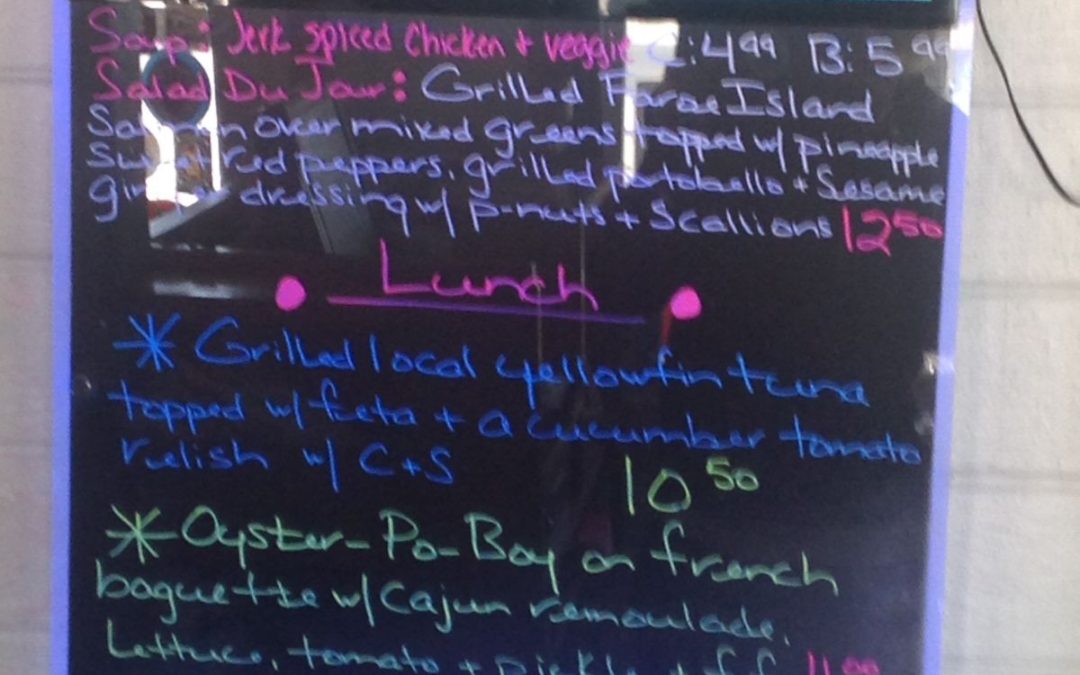 Soup: Jerk spiced Chicken + veggie C: 4.99 B: 5.99
Salad Du Jour: Grilled Faroe Island
Salmon over mixed greens topped w/ pineapple
Sweet red peppers, grilled portobello + Sesame
Ginger dressing w/ p-nuts + Scallions 12 50
Lunch
* Grilled local yellowfin tuna
topped w/ feta + a cucumber tomato
relish w/ C+S
10 50
* Oyster-Po-Boy on french
baguette w/ Cajun remoulade,
Lettuce, tomato + pickle + f.f. 11.00